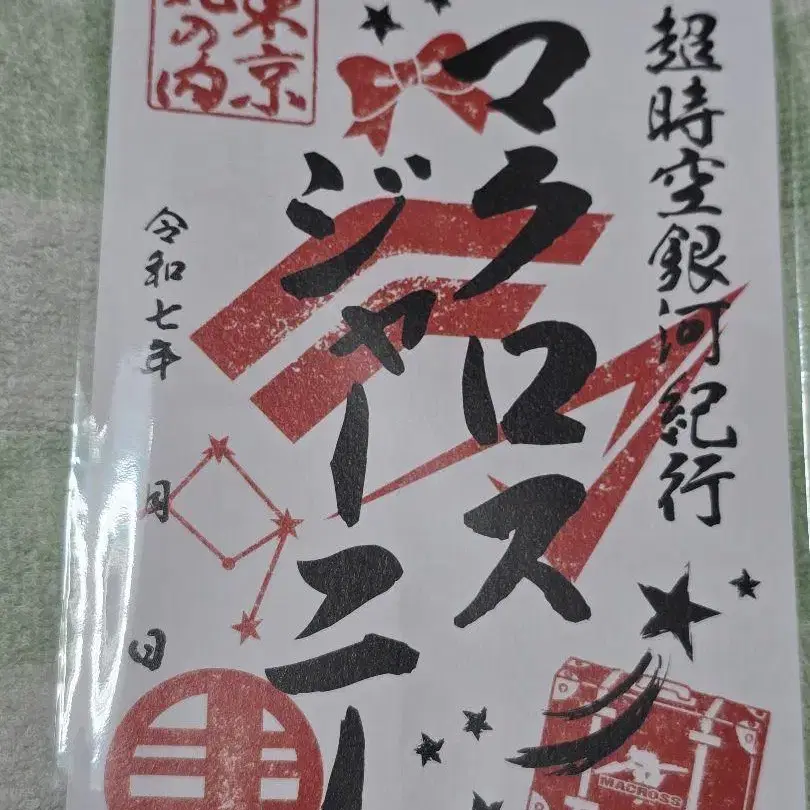 超時空銀河紀行
マクロス
ジャーニー
東京
丸の内
令和七年
月
日
MACROSS